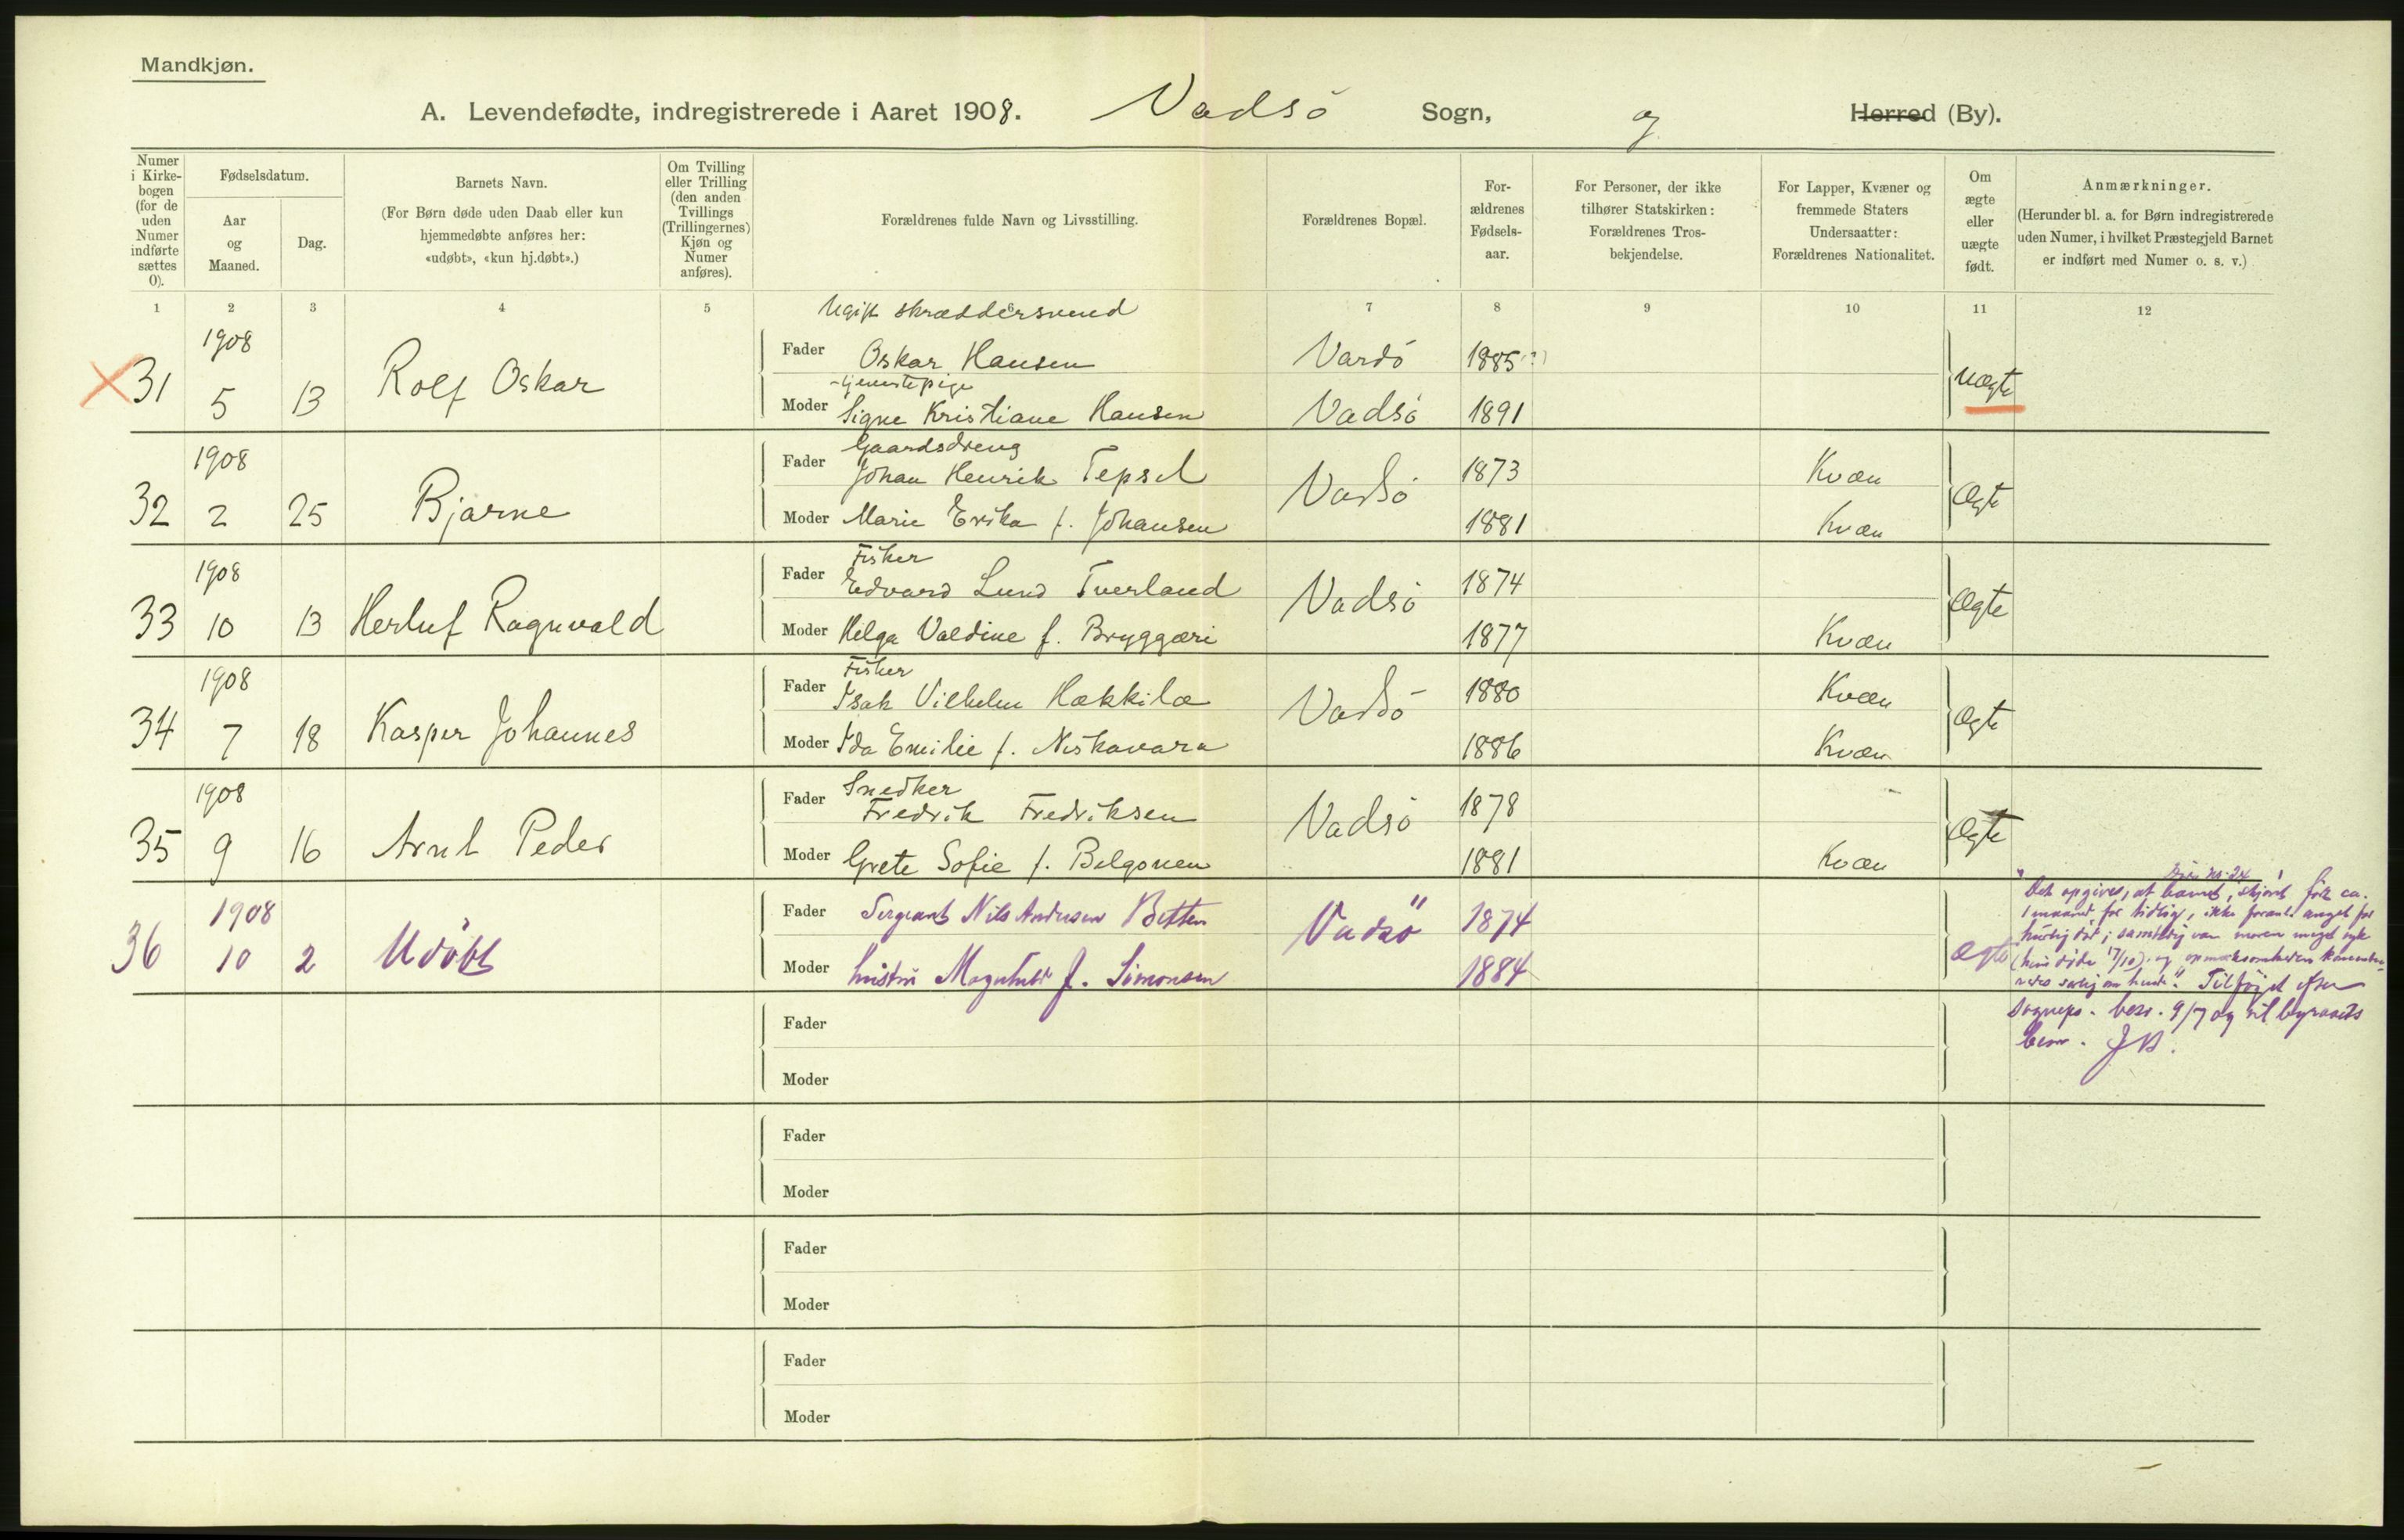 Mandkjøn.
A. Levendefødte, indregistrerede i Aaret 1908. Vadsö Sogn, og Herred (By).
Numer i Kirkebogen (for de uden Numer indførte sættes 0).
Fødselsdatum.
Aar og Maaned.
Dag.
Barnets Navn.
(For Børn døde uden Daab eller kun hjemmedøbte anføres her: «udøbt», «kun hj.døbt».)
Om Tvilling eller Trilling (den anden Tvillings (Trillingernes) Kjøn og Numer anføres).
Forældrenes fulde Navn og Livsstilling.
Forældrenes Bopæl.
Forældrenes Fødselsaar.
For Personer, der ikke tilhører Statskirken: Forældrenes Trosbekjendelse.
For Lapper, Kvæner og fremmede Staters Undersaatter: Forældrenes Nationalitet.
Om ægte eller uægte født.
Anmærkninger.
(Herunder bl. a. for Børn indregistrerede uden Numer, i hvilket Præstegjeld Barnet er indført med Numer o. s. v.)
1 2 3 4 5 6 7 8 9 10 11 12
Ugift skræddersvend
31 1908 5 13 Rolf Oskar Fader Oskar Hansen Vardö 1885(?) uægte
tjenestepige
Moder Signe Kristiane Hansen Vadsö 1891
Gaardsdreng
32 1908 2 25 Bjarne Fader Johan Henrik Tepsel Vadsö 1873 Kvæn Ægte
Moder Marie Erika f. Johansen 1881 Kvæn
Fisker
33 1908 10 13 Herluf Ragnvald Fader Edvard Lund Tverland Vadsö 1874 Ægte
Moder Helga Valdine f. Bryggæri 1877 Kvæn
Fisker
34 1908 7 18 Kasper Johannes Fader Isak Vilhelm Hækkilæ Vadsö 1880 Kvæn Ægte
Moder Ida Emilie f. Niskavara 1886 Kvæn
Snedker
35 1908 9 16 Arnt Peder Fader Fredrik Fredriksen Vadsö 1878 Ægte
Moder Grete Sofie f. Belgonen 1881 Kvæn
36 1908 10 2 Udöbt Fader Sergeant Nils Andersen Betten Vadsö 1874 Ægte
Moder hustru f. Simonsen 1884
"Det opgives, at barnet, skjönt født ca.
1 maaned for tidlig, ikke
hurtig död; samtidig var moren meget syk
(hun döde 17/10) og opmerksomheden
særlig om hende". Tilföjet efter
Sognepr. besv. 9/7 og til byraaets
J.B.
Fader
Moder
Fader
Moder
Fader
Moder
Fader
Moder